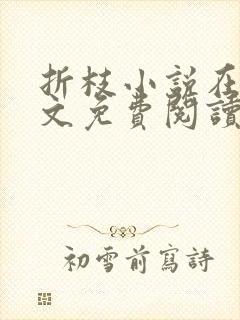 折枝小說在
文免費閱讀
初雪前寫詩